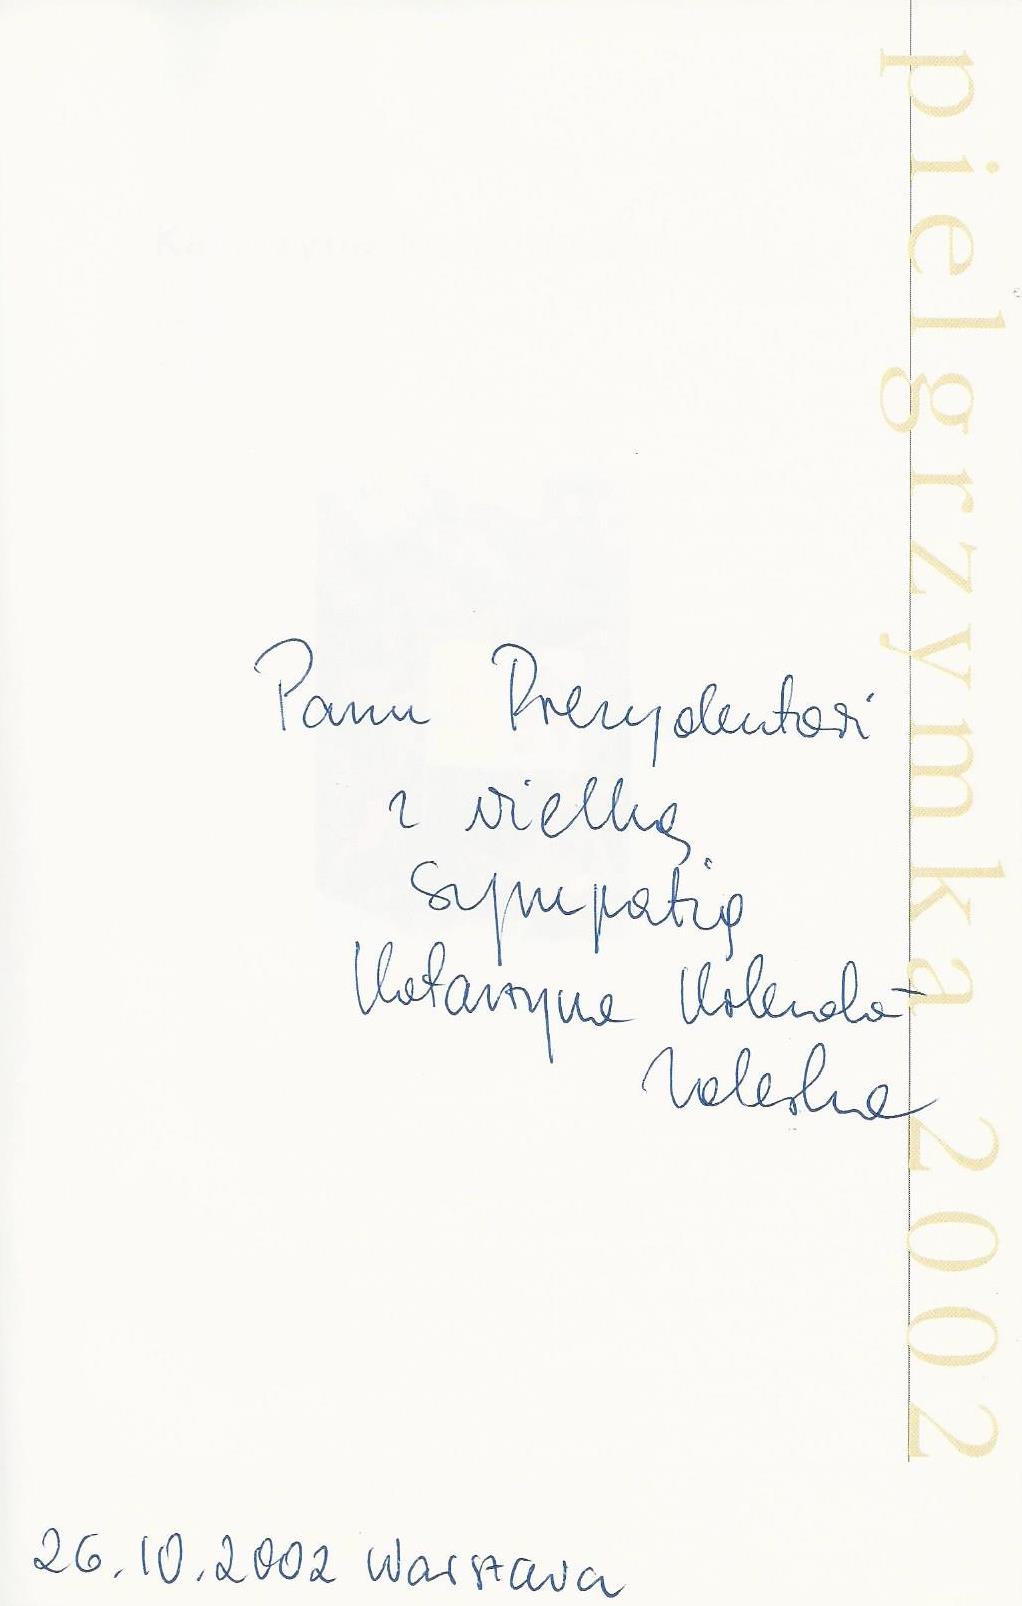 pielgrzymka 2002
Panu Prezydentowi
z wielką
sympatią
Katarzyna Kolenda-
Zaleska
26.10.2002 Warszawa